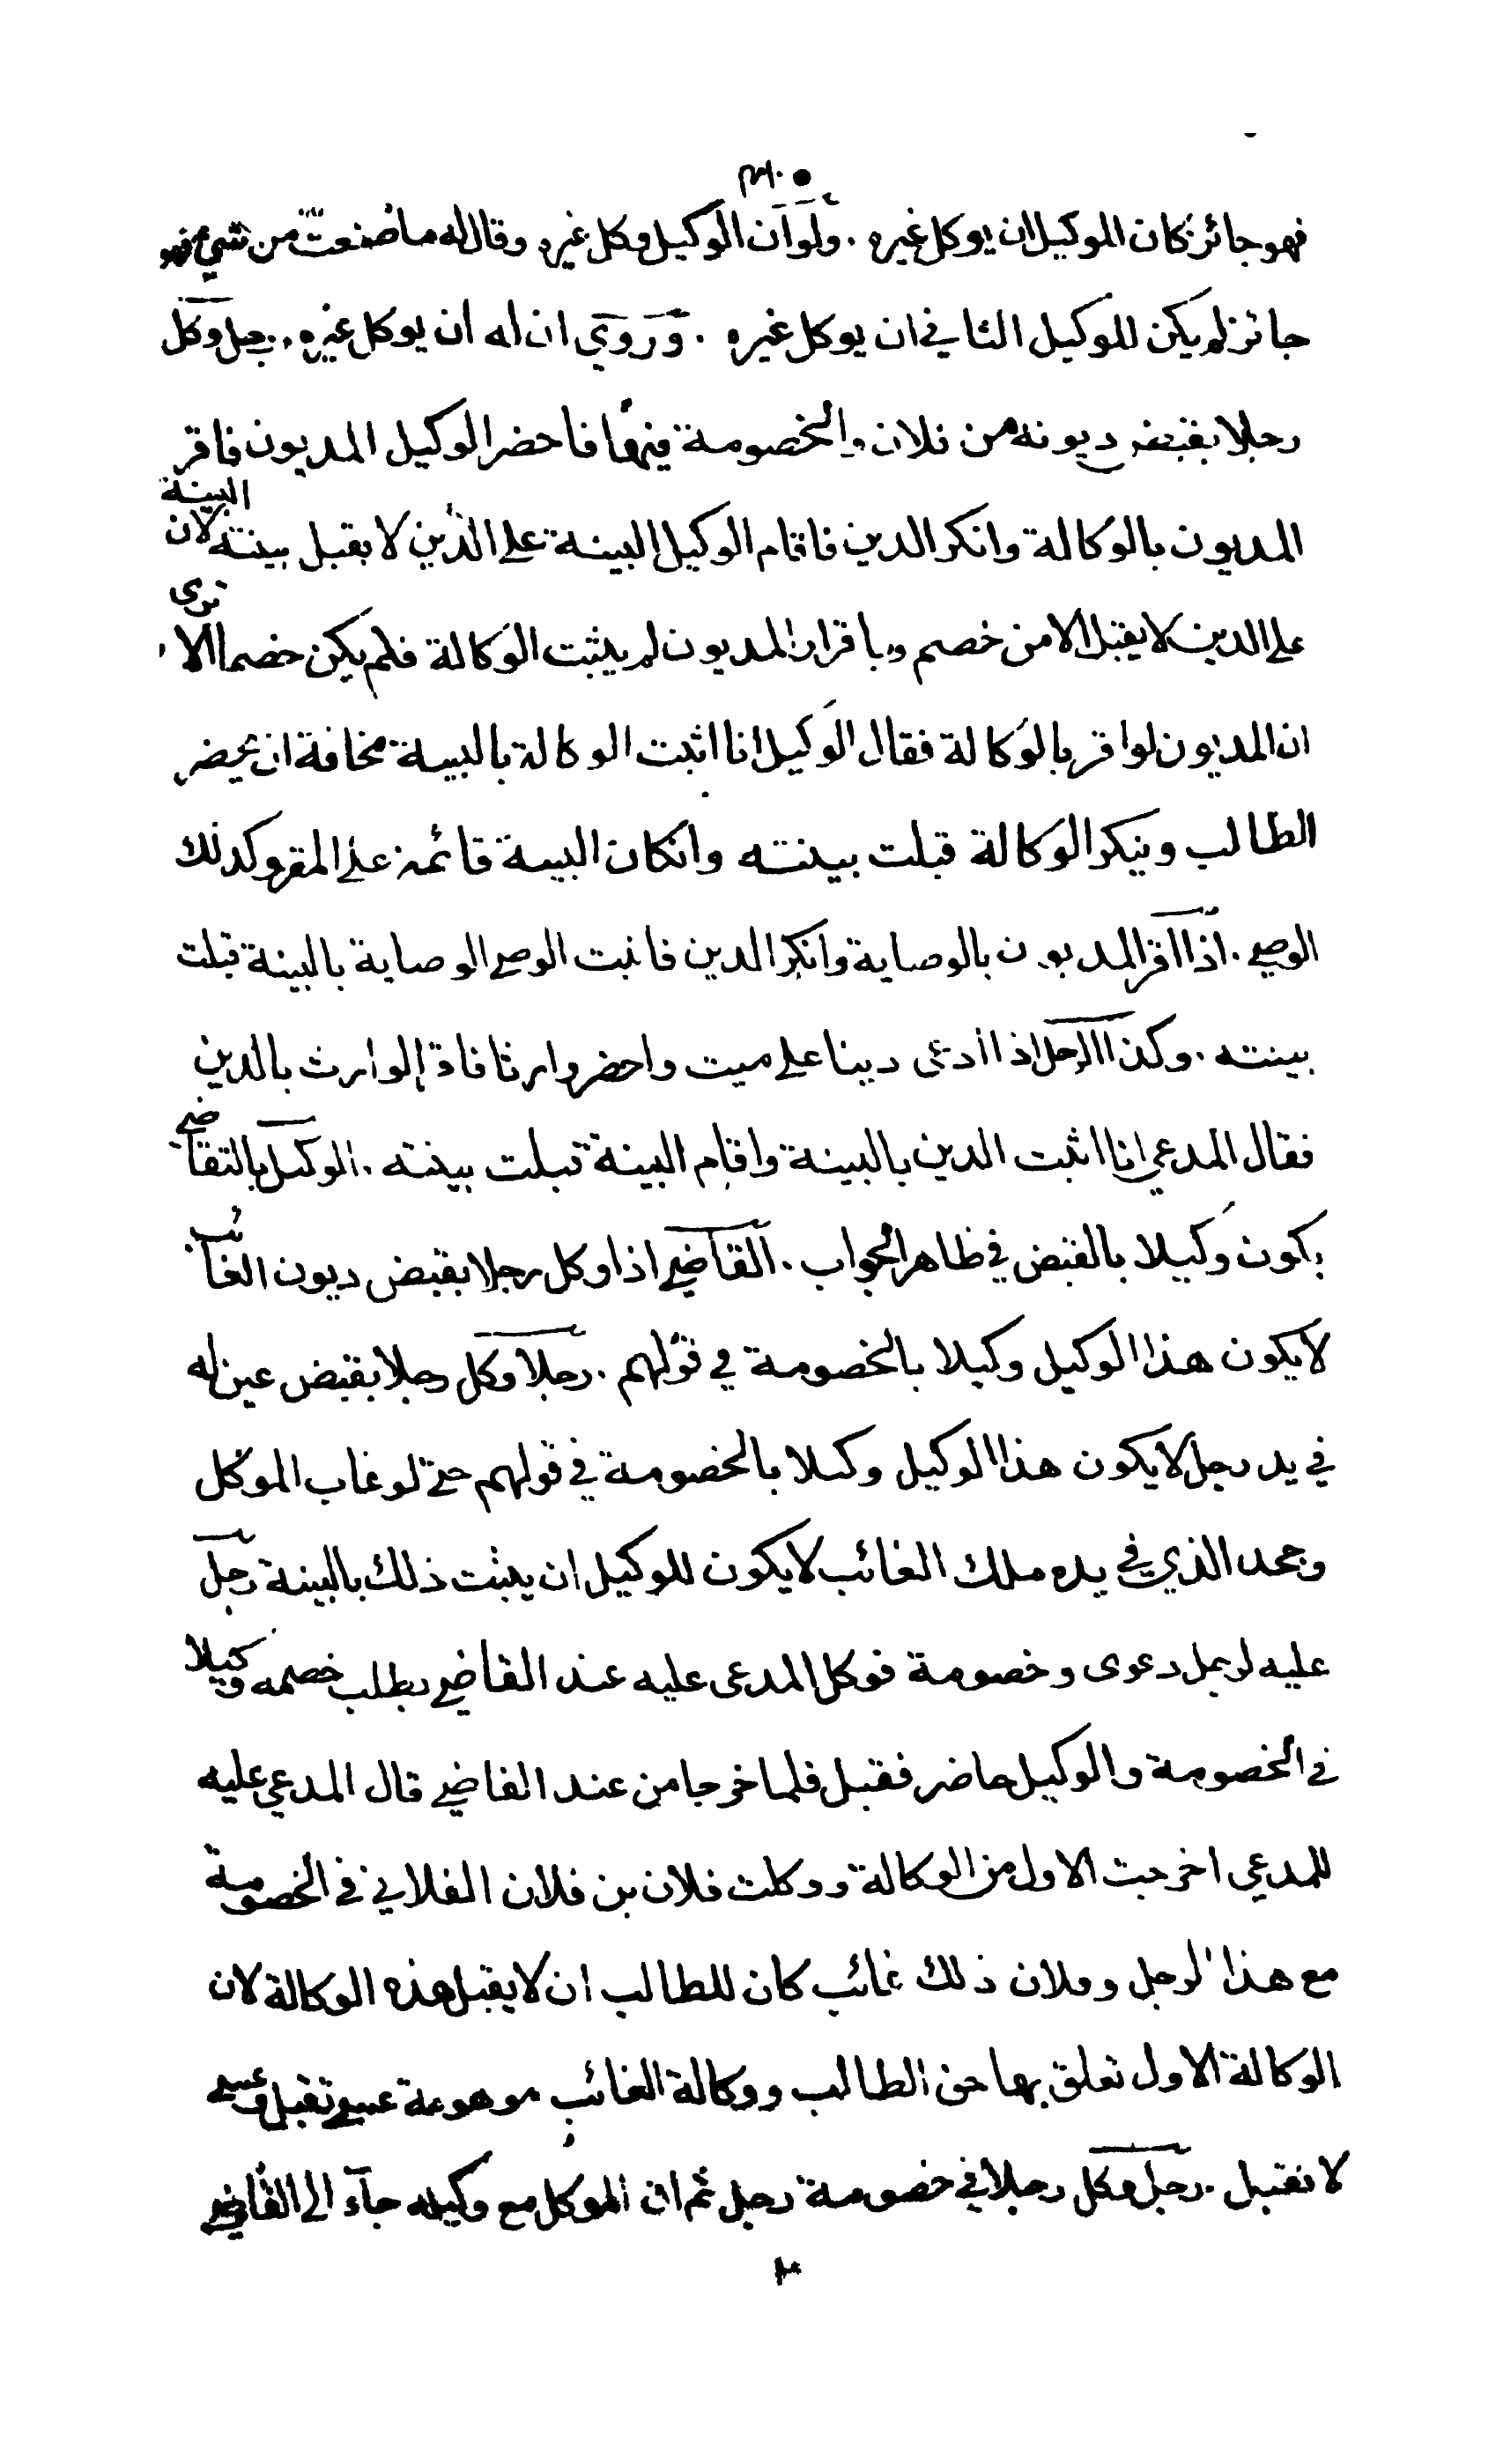 فهو جائز كان الموكيل ان يوكل غيره . ولو ان الوكيل وكل غيره وقال له ما صنعت من شيء فهو
جائز لم يكن للوكيل الثاني ان يوكل غيره . وروي ان له ان يوكل غيره . رجل وكل
رجلا بقبض ديونه من فلان والخصومة فيها فاحضر الوكيل المديون فاقر
المديون بالوكالة وانكر الدين فاقام الوكيل البينة على الدين لا يقبل بينته لان البينة
على الدين لا يقبل الا من خصم وباقرار المديون لم يثبت الوكالة فلم يكن خصما الا ترى
ان المديون لو اقر بالوكالة فقال الوكيل انا اثبت الوكالة بالبينة مخافة ان يحضر
الطالب وينكر الوكالة قبلت بينته وانكان البينة قائمة على المقر وكذلك
الوصي . اذا اقر المديون بالوصاية وانكر الدين فاثبت الوصي الوصاية بالبينة قبلت
بينته . وكذا الرجل اذا ادعى دينا على ميت واحضر وارثا فاقر الوارث بالدين
فقال المدعي انا اثبت الدين بالبينة واقام البينة قبلت بينته . الوكيل بالتقاضي
يكون وكيلا بالقبض في ظاهر الجواب . القاضي اذا وكل رجلا بقبض ديون الغائب
لا يكون هذا الوكيل وكيلا بالخصومة في قولهم . رجلا وكل رجلا بقبض عين له
في يد رجل لا يكون هذا الوكيل وكيلا بالخصومة في قولهم حتى لو غاب الموكل
وجحد الذي في يده ملك الغائب لا يكون للوكيل ان يثبت ذلك بالبينة رجل
عليه لرجل دعوى وخصومة فوكل المدعى عليه عند القاضي بطلب خصمه وكيلا
في الخصومة والوكيل حاضر فقبل فلما خرجا من عند القاضي قال المدعي عليه
للمدعي اخرجت الاول من الوكالة ووكلت فلان بن فلان الفلاني في الخصومة
مع هذا الرجل وفلان ذلك غائب كان للطالب ان لا يقبل هذه الوكالة لان
الوكالة الاول تعلق بها حق الطالب ووكالة الغائب موهومة عسى تقبل وعسى
لا تقبل . رجل وكل رجلا في خصومة رجل ثم ان الموكل مع وكيله جاء الى القاضي